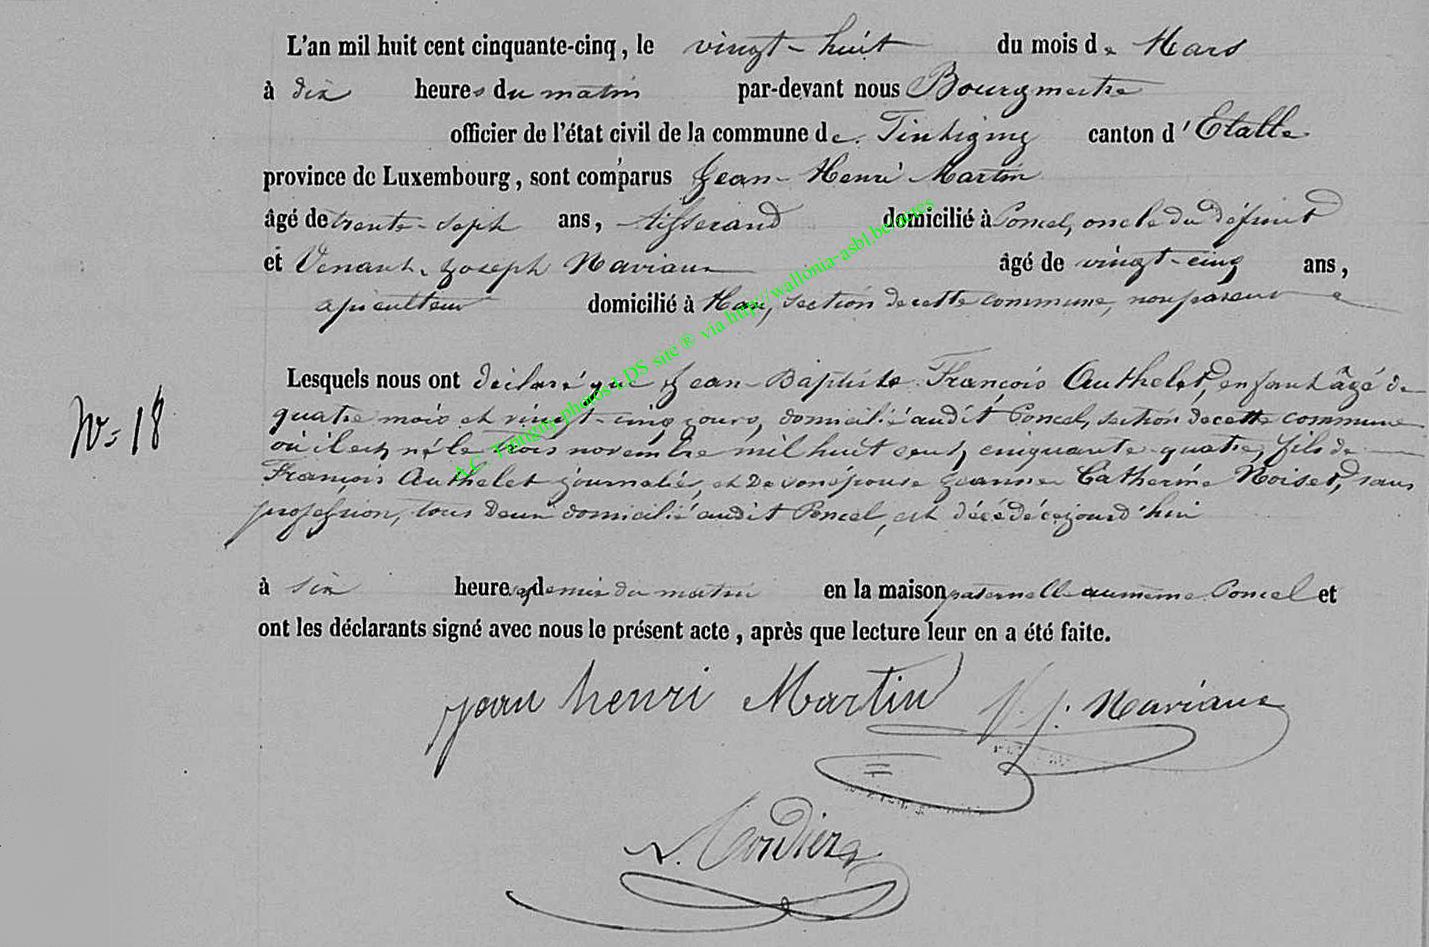 L'an mil huit cent cinquante-cinq, le vingt-huit du mois de Mars
à dix heures du matin par-devant nous Bourgmestre
officier de l'état civil de la commune de Tintigny canton d'Etalle
province de Luxembourg, sont comparus Jean-Henri Martin
âgé de trente-sept ans, tisserand domicilié à Poncel, oncle du défunt
et Venant-Joseph Naviaux âgé de vingt-cinq ans,
apiculteur domicilié à Han, section de cette commune, non parent
Lesquels nous ont déclaré que Jean-Baptiste François Authelet, enfant âgé de
N=18
quatre mois et vingt-cinq jours, domicilié audit Poncel, section de cette commune
où il est né le trois novembre mil huit cent cinquante quatre, fils de
François Authelet journalier, et de son épouse Jeanne Catherine Noiset, sans
profession, tous deux domicilié audit Poncel, est décédé cejourd'hui
à six heures et demie du matin en la maison paternelle au même Poncel et
ont les déclarants signé avec nous le présent acte, après que lecture leur en a été faite.
jean henri Martin V. J. Naviaux
Cordier
A.C. Tintigny photos LDS site ® via http://wallonia-asbl.be/actes